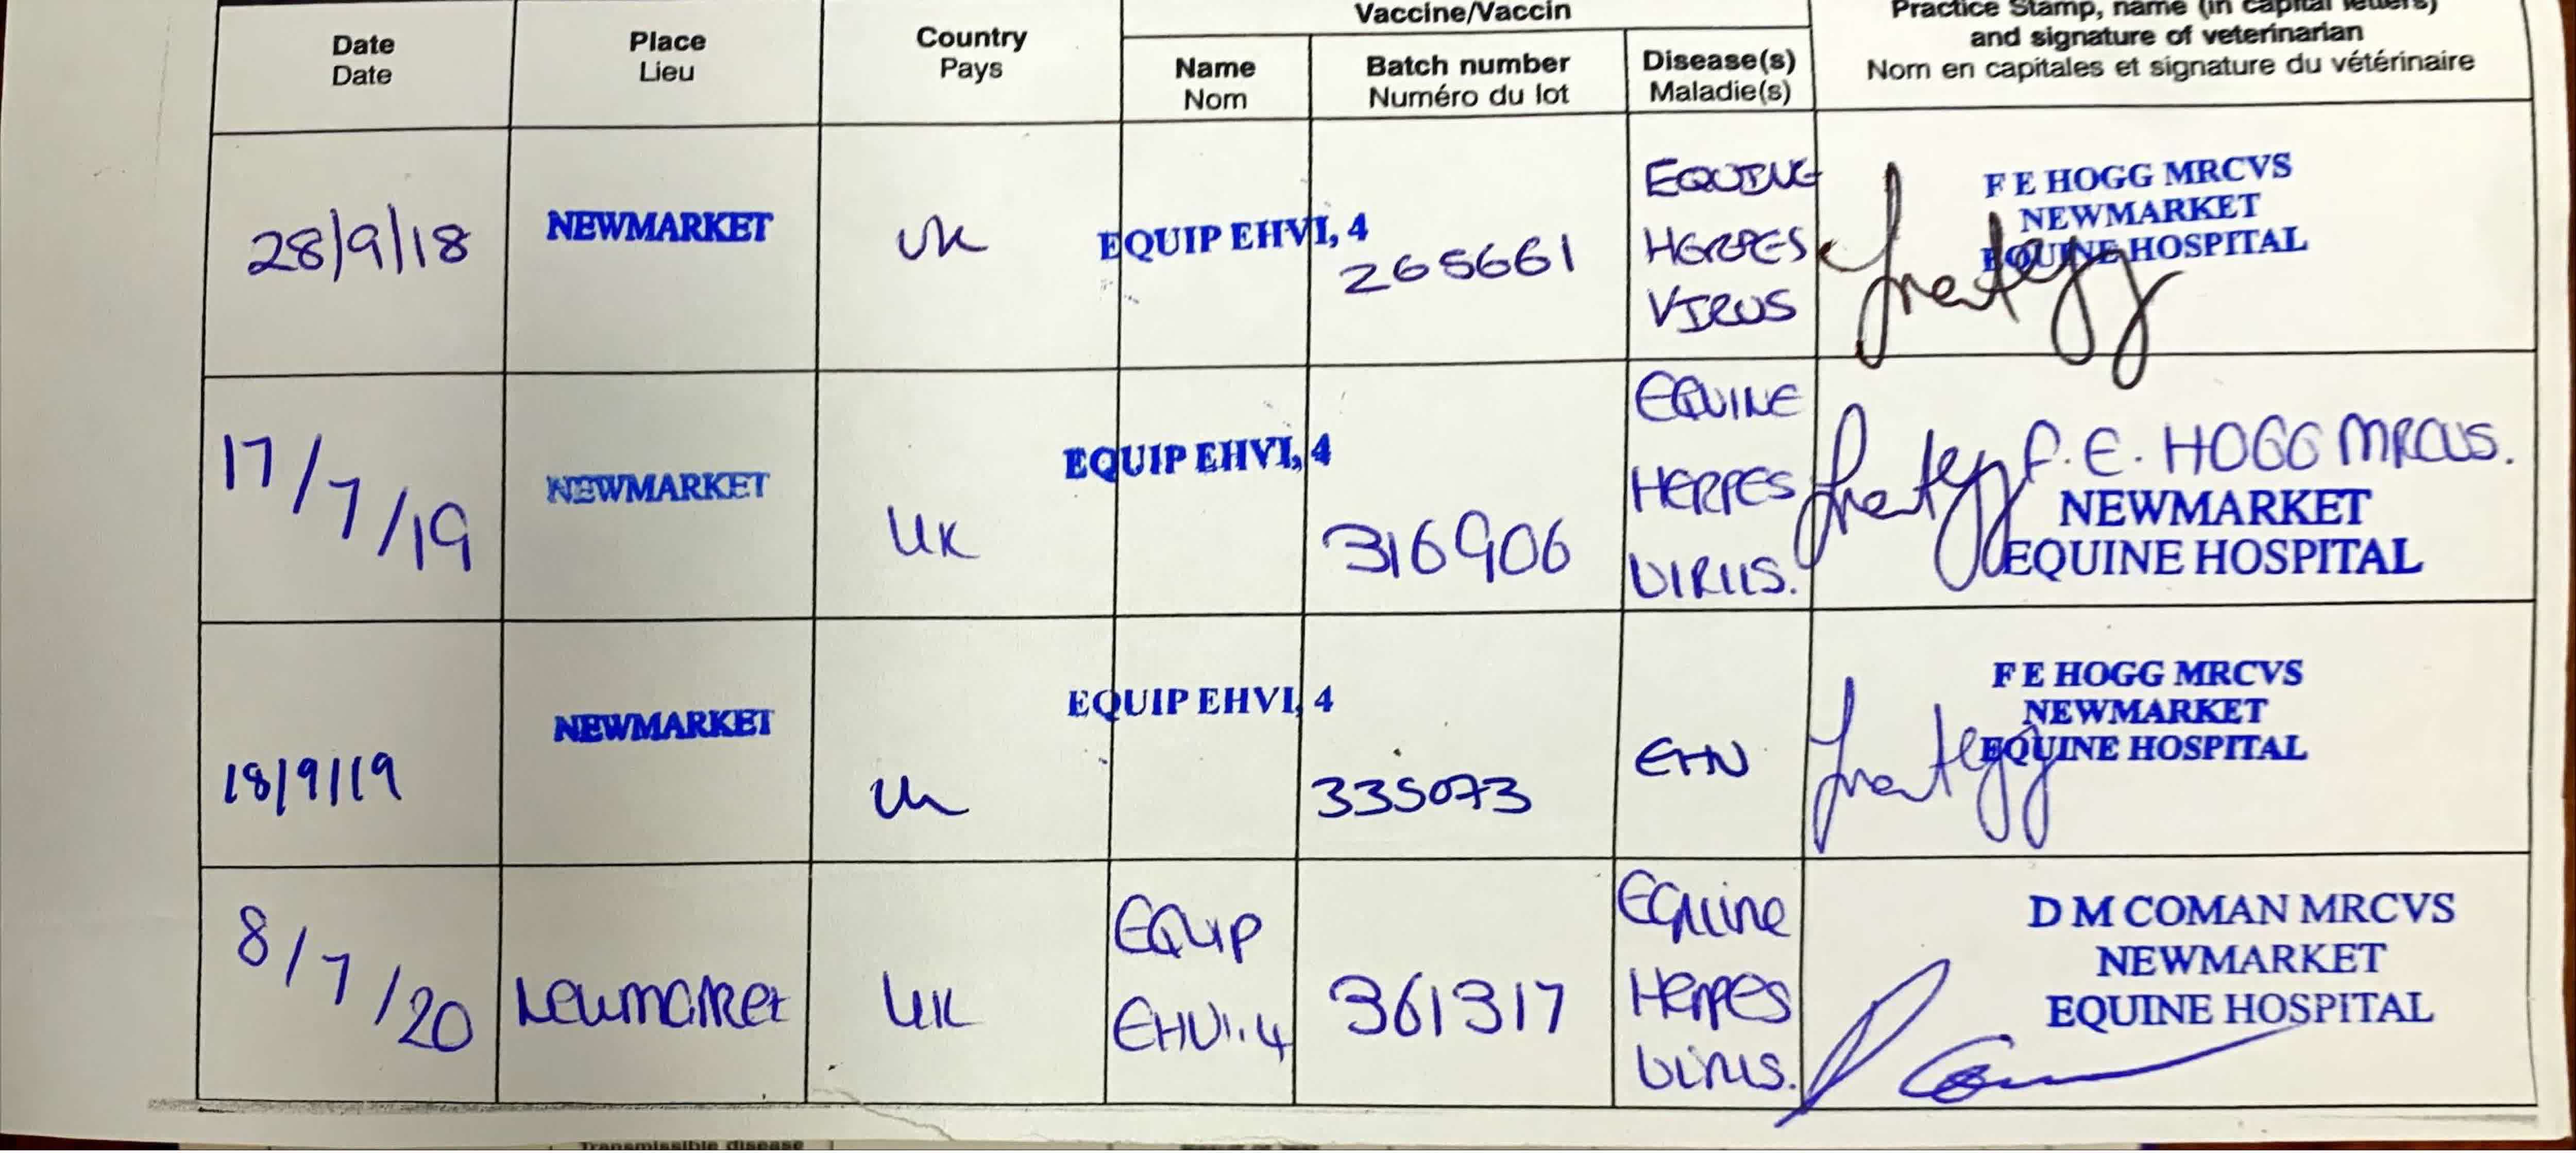 Vaccine/Vaccin
Practice Stamp, name (in capital letters)
and signature of veterinarian
Nom en capitales et signature du vétérinaire
Date
Date
Place
Lieu
Country
Pays
Name
Nom
Batch number
Numéro du lot
Disease(s)
Maladie(s)
28/9/18
NEWMARKET
UK
EQUIP EHVI, 4
265661
EQUINE
HERPES
VIRUS
F E HOGG MRCVS
NEWMARKET
EQUINE HOSPITAL
17/7/19
NEWMARKET
UK
EQUIP EHVI, 4
316906
EQUINE
HERPES
VIRUS.
F. E. HOGG MRCVS.
NEWMARKET
EQUINE HOSPITAL
18/9/19
NEWMARKET
UK
EQUIP EHVI, 4
335073
EHV
F E HOGG MRCVS
NEWMARKET
EQUINE HOSPITAL
8/7/20
Newmarket
UK
EQUIP
EHV1.4
361317
Equine
Herpes
Virus.
D M COMAN MRCVS
NEWMARKET
EQUINE HOSPITAL
Transmissible disease